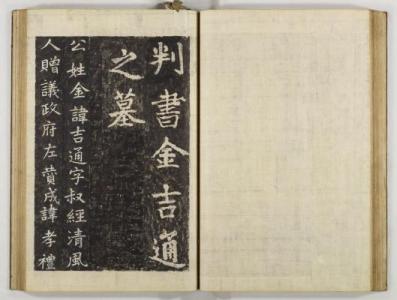 判書金吉通
之墓
公姓金諱吉通字叔經清風
人贈議政府左賛成諱孝禮